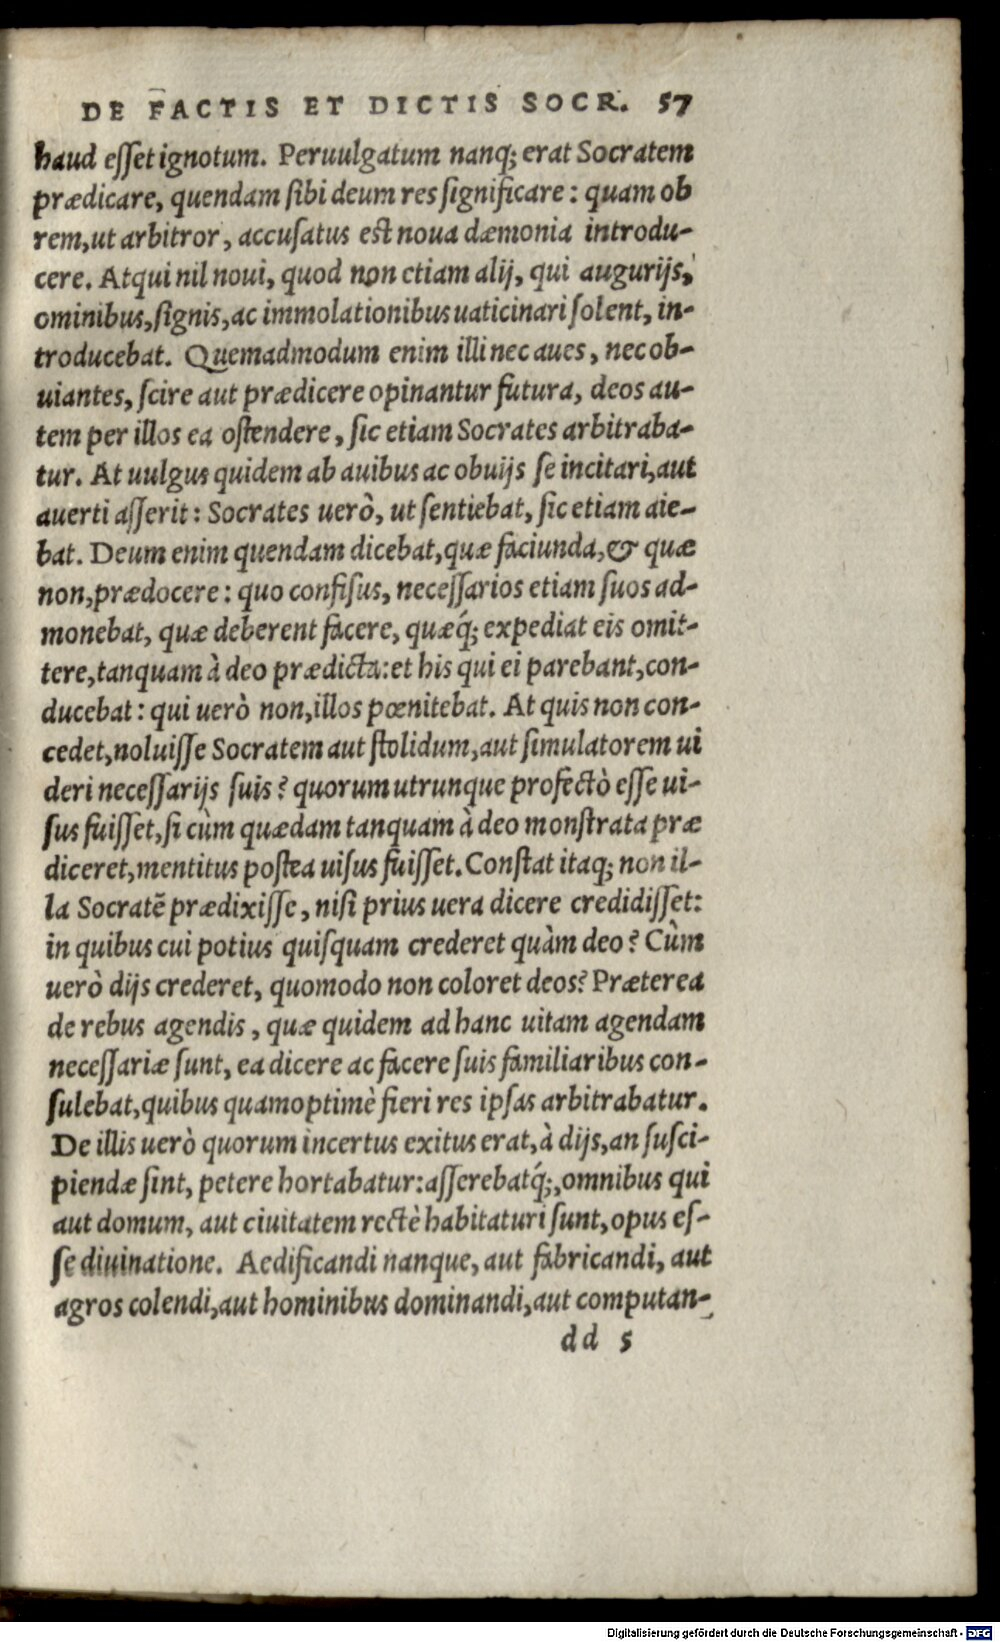 DE FACTIS ET DICTIS SOCR. 57
haud eſſet ignotum. Peruulgatum nanq; erat Socratem
prædicare, quendam ſibi deum res ſignificare: quam ob
rem, ut arbitror, accuſatus eſt noua dæmonia introdu-
cere. Atqui nil noui, quod non etiam alij, qui augurijs,
ominibus, ſignis, ac immolationibus uaticinari ſolent, in-
troducebat. Quemadmodum enim illi nec aues, nec ob-
uiantes, ſcire aut prædicere opinantur futura, deos au-
tem per illos ea oſtendere, ſic etiam Socrates arbitraba-
tur. At uulgus quidem ab auibus ac obuijs ſe incitari, aut
auerti aſſerit: Socrates uerò, ut ſentiebat, ſic etiam aie-
bat. Deum enim quendam dicebat, quæ faciunda, & quæ
non, prædocere: quo confiſus, neceſſarios etiam ſuos ad-
monebat, quæ deberent facere, quæq́; expediat eis omit-
tere, tanquam à deo prædicta: et his qui ei parebant, con-
ducebat: qui uerò non, illos pœnitebat. At quis non con-
cedet, noluiſſe Socratem aut ſtolidum, aut ſimulatorem ui
deri neceſſarijs ſuis? quorum utrunque profectò eſſe ui-
ſus fuiſſet, ſi cùm quædam tanquam à deo monſtrata præ
diceret, mentitus poſtea uiſus fuiſſet. Conſtat itaq; non il-
la Socratẽ prædixiſſe, niſi prius uera dicere credidiſſet:
in quibus cui potius quiſquam crederet quàm deo? Cùm
uerò dijs crederet, quomodo non coloret deos? Præterea
de rebus agendis, quæ quidem ad hanc uitam agendam
neceſſariæ ſunt, ea dicere ac facere ſuis familiaribus con-
ſulebat, quibus quamoptimè fieri res ipſas arbitrabatur.
De illis uerò quorum incertus exitus erat, à dijs, an ſuſci-
piendæ ſint, petere hortabatur: aſſerebatq́;, omnibus qui
aut domum, aut ciuitatem rectè habitaturi ſunt, opus eſ-
ſe diuinatione. Aedificandi nanque, aut fabricandi, aut
agros colendi, aut hominibus dominandi, aut computan-
dd 5
Digitalisierung gefördert durch die Deutsche Forschungsgemeinschaft - DFG